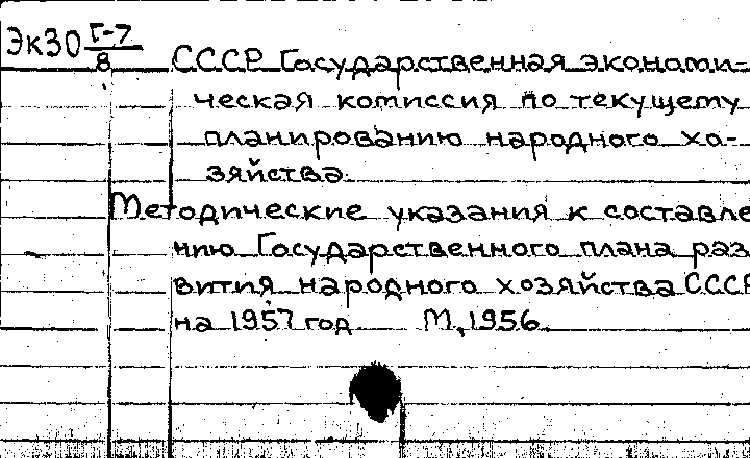 Эк30 Г-7/8
СССР Государственная экономи-
ческая комиссия по текущему
планированию народного хо-
зяйства.
Методические указания к составле
нию Государственного плана раз
вития народного хозяйства СССР
на 1957 год М, 1956.